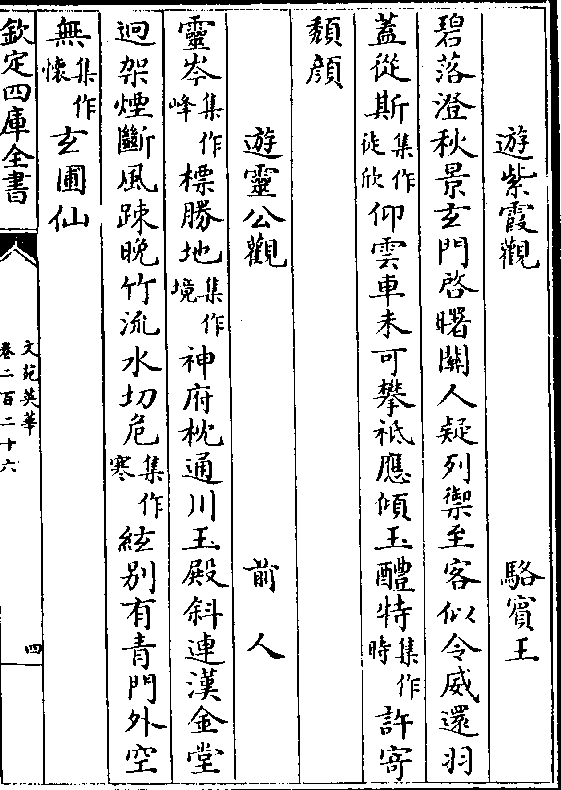 遊紫霞觀　駱賓王
碧落澄秋景玄門啓曙關人疑列禦至客似令威還羽
蓋從斯集作徒欣仰雲車未可攀祗應傾玉醴特集作時許寄
頹顔
遊靈公觀　前人
靈岑集作峰標勝地集作境神府枕通川玉殿斜連漢金堂
迥架煙斷風踈晚竹流水切危集作寒絃別有青門外空
無集作懷玄圃仙
欽定四庫全書
文苑英華
卷二百二十六
四